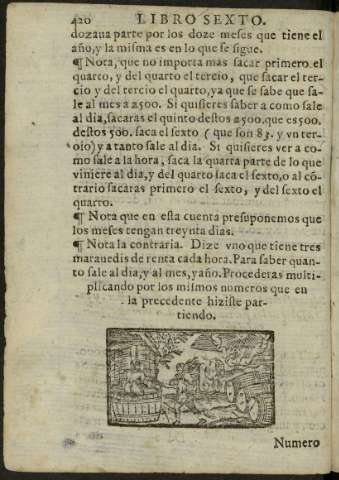 420 LIBRO SEXTO.
dozaua parte por los doze meses que tiene el
año, y la misma es en lo que se sigue.
¶ Nota, que no importa mas sacar primero el
quarto, y del quarto el tercio, que sacar el ter-
cio y del tercio el quarto, ya que se sabe que sa-
le al mes a 2500. Si quisieres saber a como sale
al dia, sacaras el quinto destos 2500. que es 500.
destos 500. saca el sexto ( que son 83. y vn ter-
cio) y a tanto sale al dia. Si quisieres ver a co-
mo sale a la hora, saca la quarta parte de lo que
viniere al dia, y del quarto saca el sexto, o al cō-
trario sacaras primero el sexto, y del sexto el
quarto.
¶ Nota que en esta cuenta presuponemos que
los meses tengan treynta dias.
¶ Nota la contraria. Dize vno que tiene tres
marauedis de renta cada hora. Para saber quan-
to sale al dia, y al mes, y año. Procederas multi-
plicando por los mismos numeros que en
la precedente hiziste par-
tiendo.
Numero